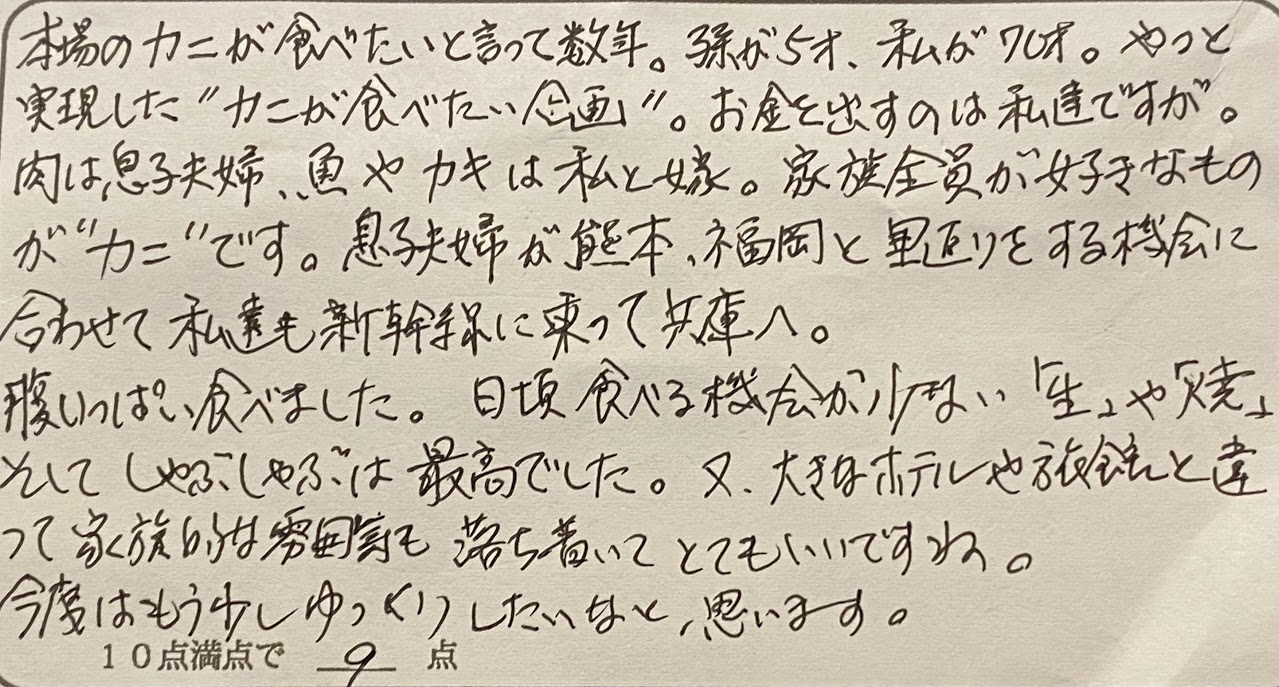 本場のカニが食べたいと言って数年。孫が5才、私が70才。やっと
実現した〝カニが食べたい企画〟。お金を出すのは私達ですが。
肉は息子夫婦、魚やカキは私と嫁。家族全員が好きなもの
が〝カニ〟です。息子夫婦が熊本、福岡と里返りをする機会に
合わせて私達も新幹線に乗って兵庫へ。
腹いっぱい食べました。日頃食べる機会が少ない「生」や「焼」
そしてしゃぶしゃぶは最高でした。又、大きなホテルや旅館と違
って家族的な雰囲気も落ち着いてとてもいいですね。
今度はもう少しゆっくりしたいなと、思います。
10点満点で 9 点